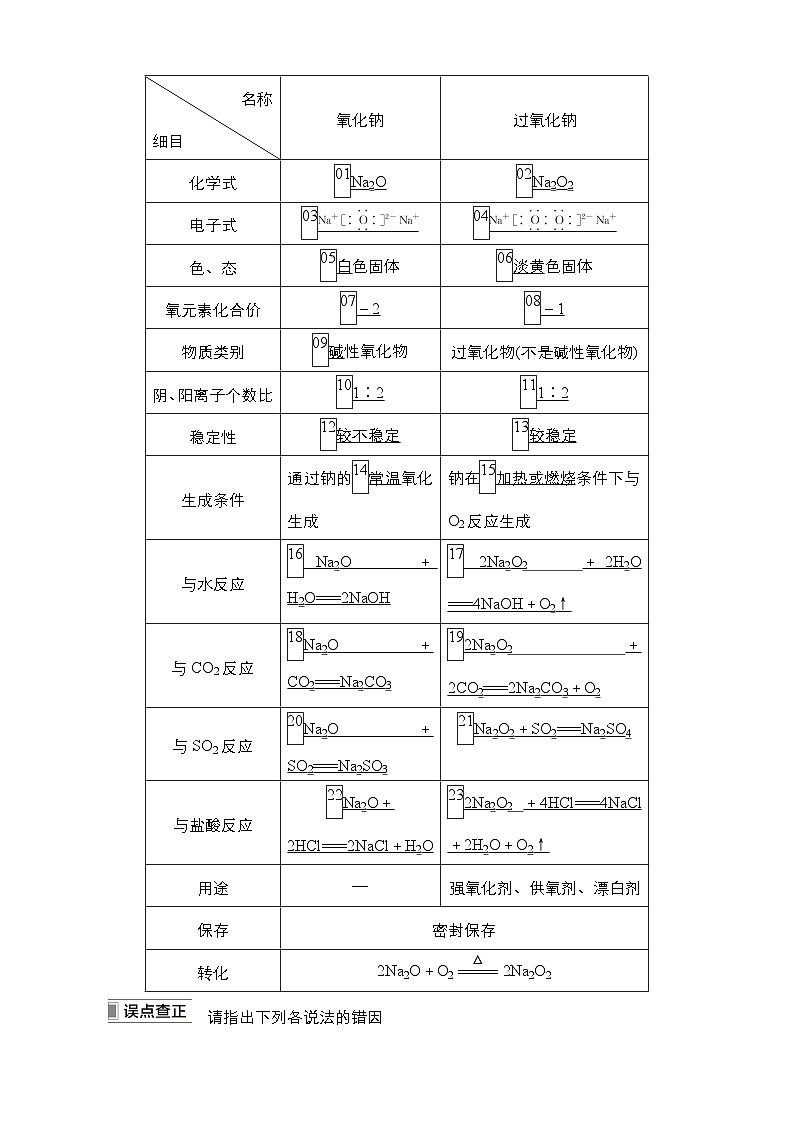 名称
细目
氧化钠
过氧化钠
化学式
01Na₂O
02Na₂O₂
电子式
03Na⁺[:Ö:]²⁻Na⁺
04Na⁺[:Ö:Ö:]²⁻Na⁺
色、态
05白色固体
06淡黄色固体
氧元素化合价
07－2
08－1
物质类别
09碱性氧化物
过氧化物(不是碱性氧化物)
阴、阳离子个数比
10 1∶2
11 1∶2
稳定性
12较不稳定
13较稳定
生成条件
通过钠的14常温氧化
生成
钠在15加热或燃烧条件下与
O₂反应生成
与水反应
16 Na₂O ＋
H₂O===2NaOH
17 2Na₂O₂ ＋ 2H₂O
===4NaOH＋O₂↑
与CO₂反应
18Na₂O ＋
CO₂===Na₂CO₃
19 2Na₂O₂ ＋
2CO₂===2Na₂CO₃＋O₂
与SO₂反应
20Na₂O ＋
SO₂===Na₂SO₃
21Na₂O₂＋SO₂===Na₂SO₄
与盐酸反应
22Na₂O＋
2HCl===2NaCl＋H₂O
23 2Na₂O₂ ＋4HCl===4NaCl
＋2H₂O＋O₂↑
用途
—
强氧化剂、供氧剂、漂白剂
保存
密封保存
转化
△
2Na₂O＋O₂ === 2Na₂O₂
误点查正 请指出下列各说法的错因